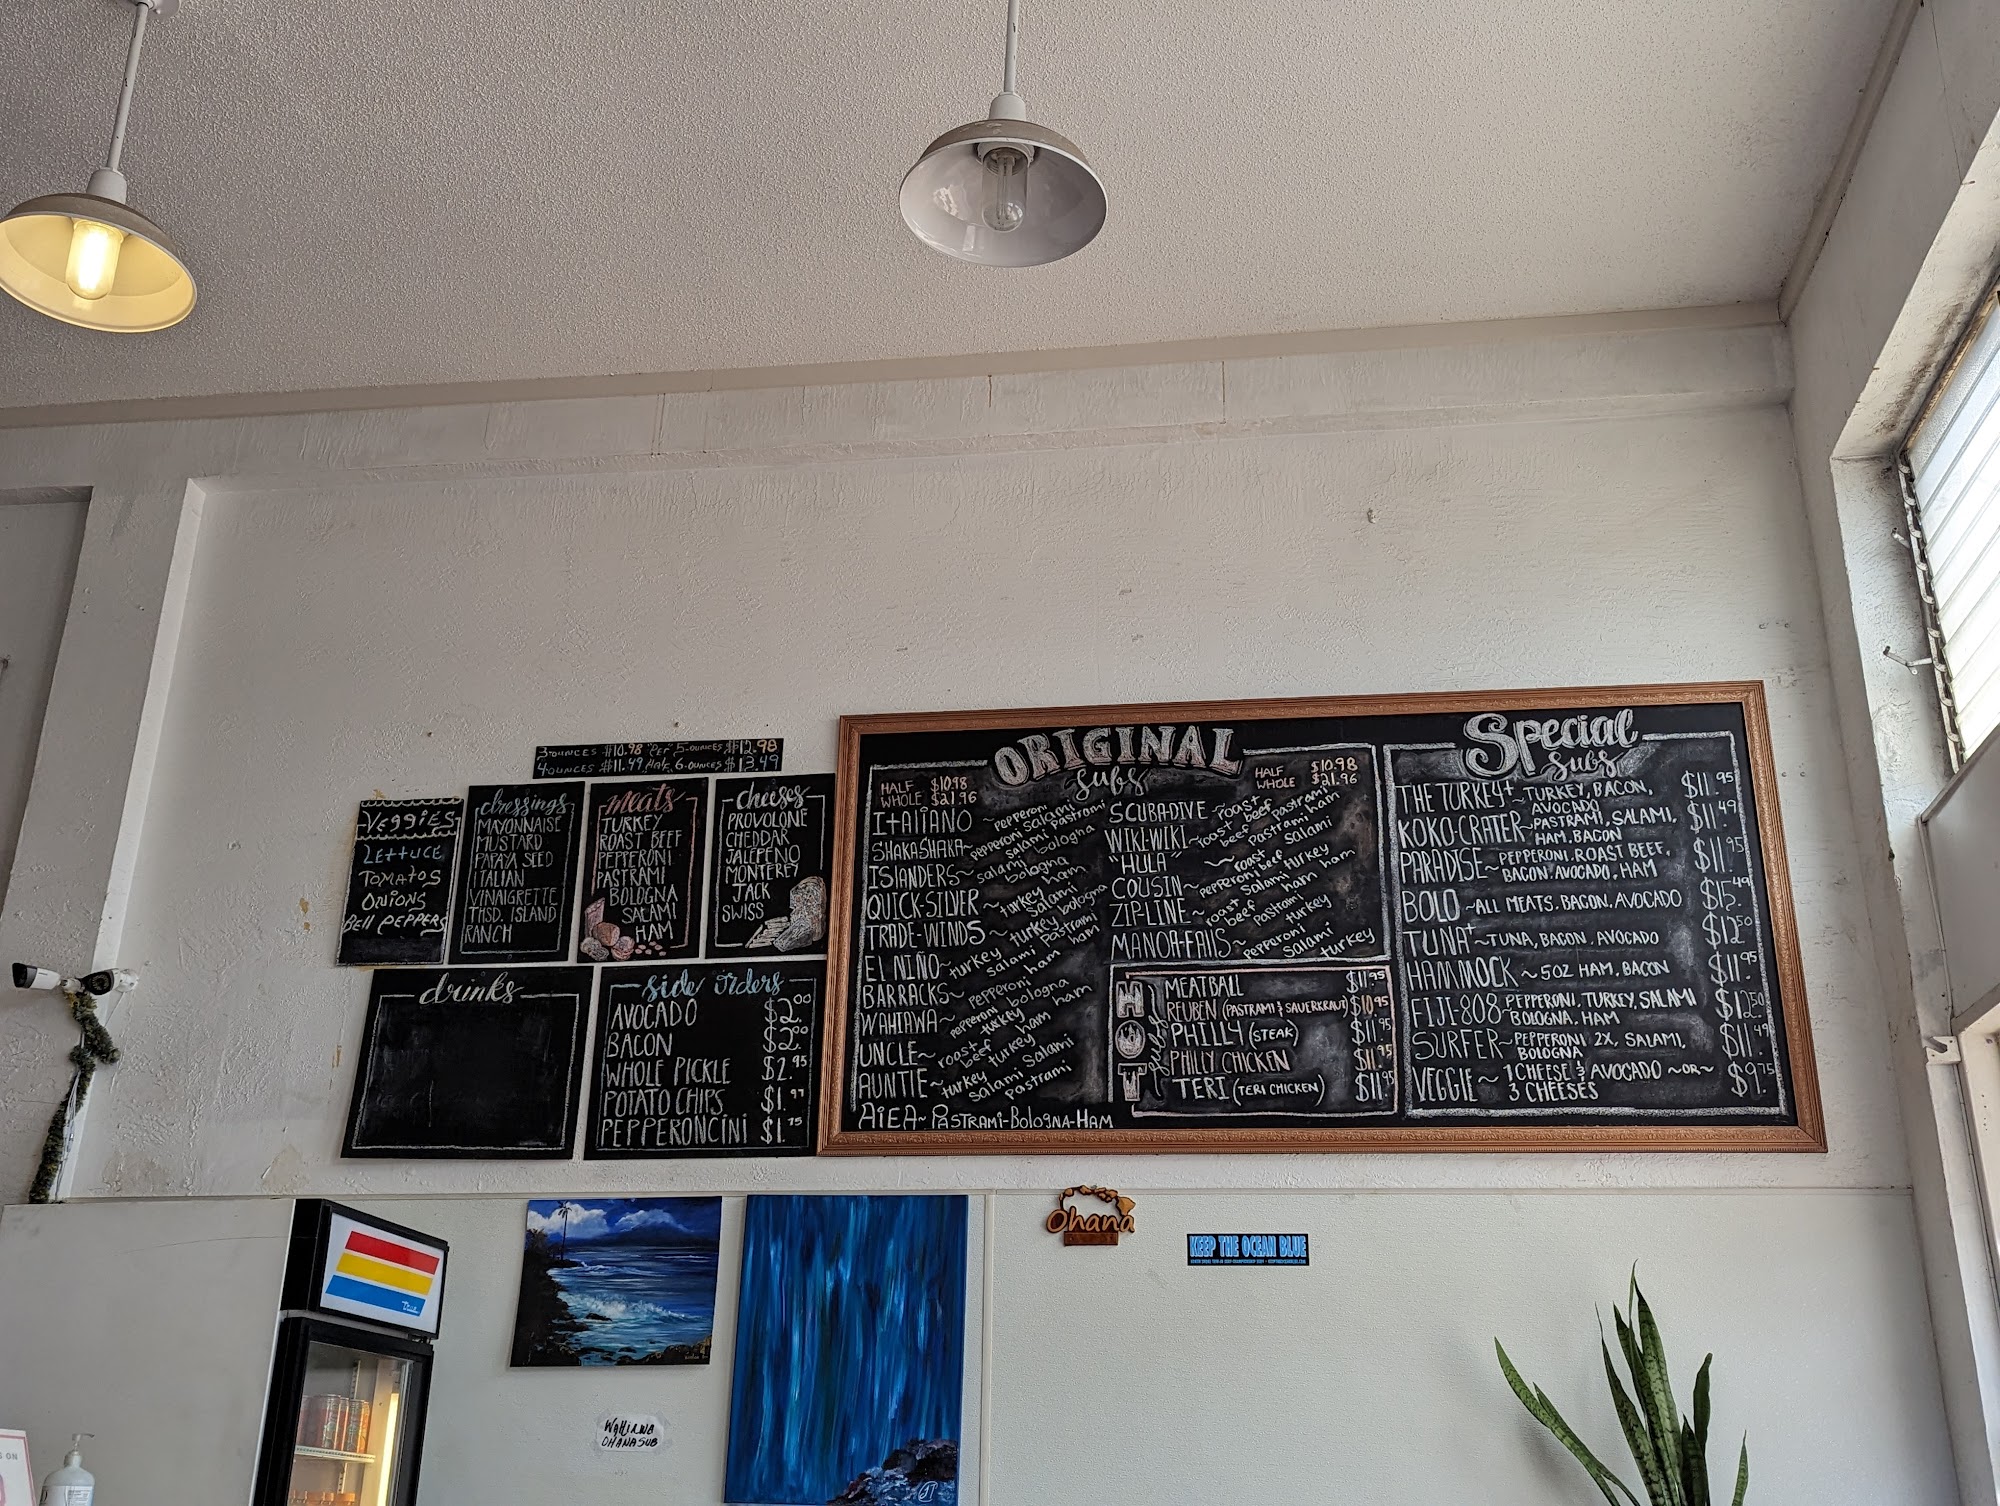 3-OUNCES $10.98 "PER" 5-OUNCES $12.98
4 OUNCES $11.49 HALF 6-OUNCES $13.49
VEGGIES
LETTUCE
TOMATOS
ONIONS
BELL PEPPERS
dressings
MAYONNAISE
MUSTARD
PAPAYA SEED
ITALIAN
VINAIGRETTE
THSD. ISLAND
RANCH
meats
TURKEY
ROAST BEEF
PEPPERONI
PASTRAMI
BOLOGNA
SALAMI
HAM
cheeses
PROVOLONE
CHEDDAR
JALEPEÑO
MONTEREY
JACK
SWISS
drinks
side orders
AVOCADO $2.00
BACON $2.00
WHOLE PICKLE $2.95
POTATO CHIPS $1.97
PEPPERONCINI $1.75
ORIGINAL
subs
HALF $10.98
WHOLE $21.96
ITALIANO ~ pepperoni salami
SHAKASHAKA~ pepperoni salami pastrami
ISLANDERS~ salami bologna
QUICK-SILVER ~ turkey ham
TRADE-WINDS ~ turkey bologna
EL NIÑO~ turkey salami pastrami
BARRACKS~ pepperoni ham
WAHIAWA~ pepperoni bologna
UNCLE~ roast beef turkey ham
AUNTIE~ turkey salami
AIEA~ PASTRAMI-BOLOGNA-HAM
HALF $10.98
WHOLE $21.96
SCUBA-DIVE ~ roast beef pastrami
WIKI-WIKI~ roast beef ham
"HULA" ~ pastrami salami
COUSIN~ pepperoni roast beef
ZIP-LINE~ roast beef
MANOA-FALLS~ pepperoni salami turkey
HOT
subs
MEATBALL $11.95
REUBEN (PASTRAMI & SAUERKRAUT) $10.95
PHILLY (STEAK) $11.95
PHILLY CHICKEN $11.95
TERI (TERI CHICKEN) $11.95
Special
subs
THE TURKEY+ ~ TURKEY, BACON, AVOCADO $11.95
KOKO-CRATER~ PASTRAMI, SALAMI, HAM, BACON $11.49
PARADISE~ PEPPERONI, ROAST BEEF, BACON, AVOCADO, HAM $11.95
BOLO ~ALL MEATS, BACON, AVOCADO $15.49
TUNA+ ~TUNA, BACON, AVOCADO $12.50
HAMMOCK ~ 5OZ HAM, BACON $11.95
FIJI-808~ PEPPERONI, TURKEY, SALAMI BOLOGNA, HAM $12.50
SURFER~ PEPPERONI 2X, SALAMI, BOLOGNA $11.49
VEGGIE ~ 1 CHEESE & AVOCADO ~OR~ 3 CHEESES $9.75
Ohana
KEEP THE OCEAN BLUE
True
WAHIAWA
OHANA SUB
S ON